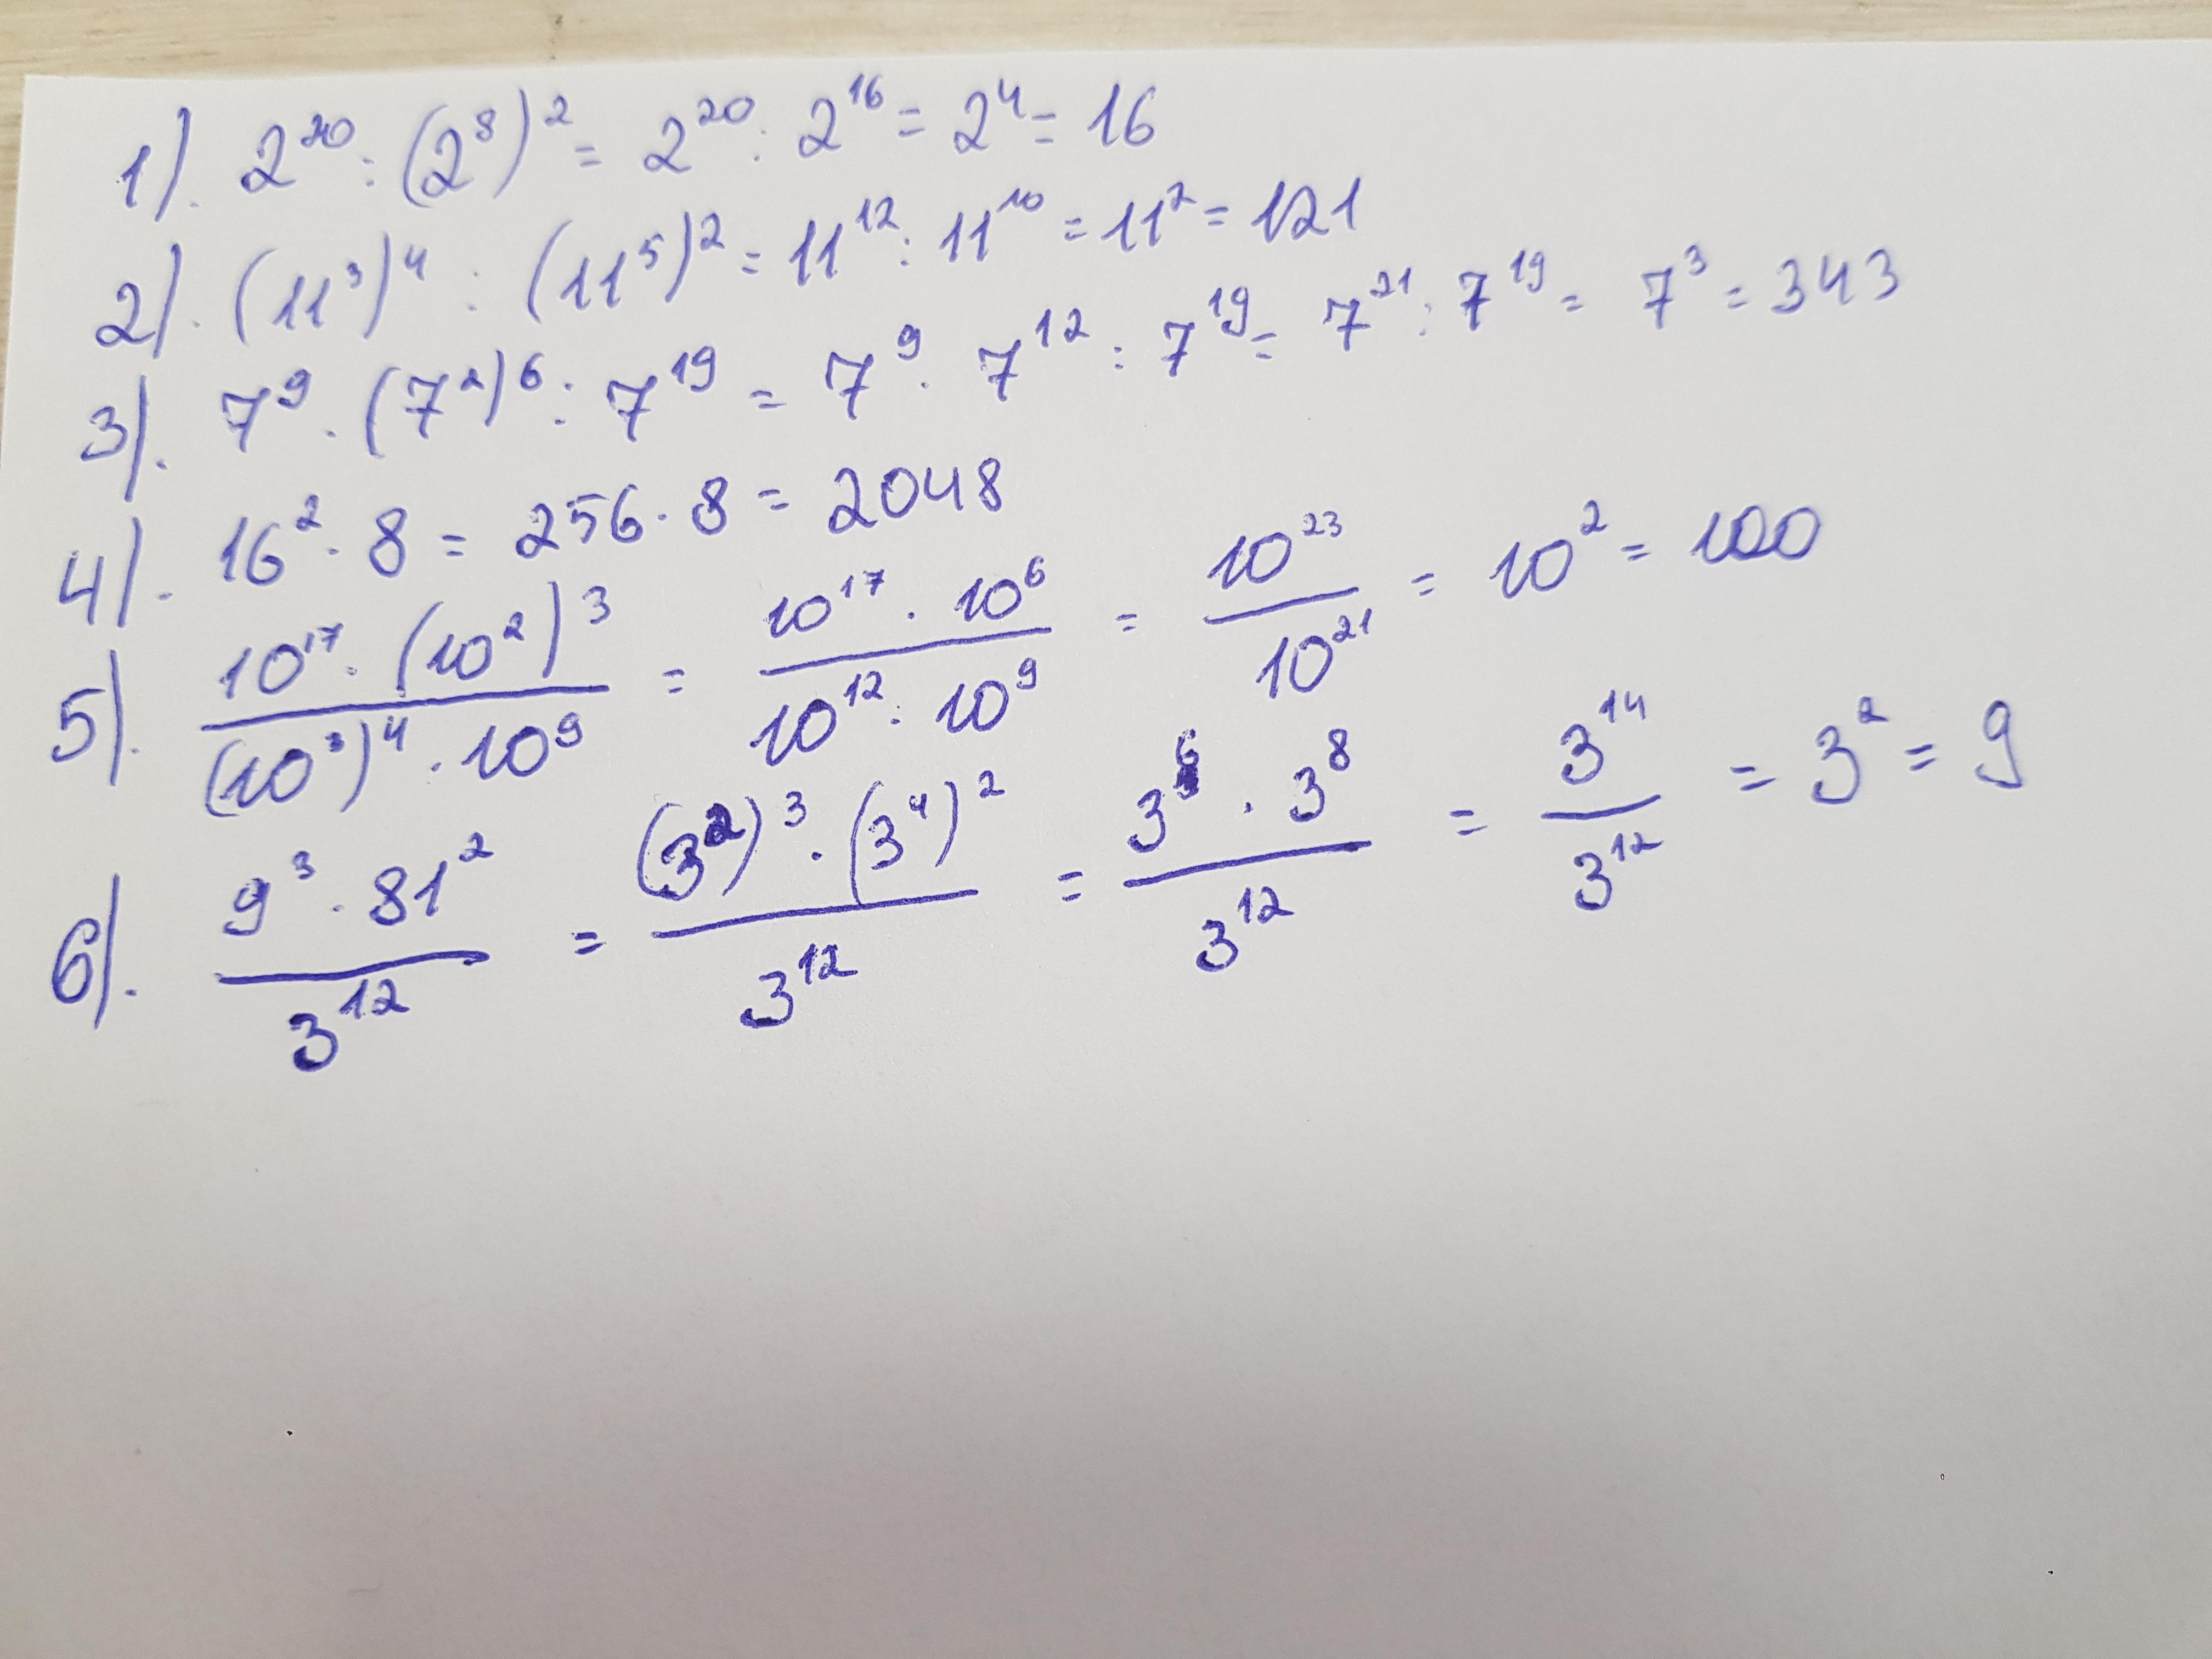 1). 2^20 : (2^8)^2 = 2^20 : 2^16 = 2^4 = 16
2). (11^3)^4 : (11^5)^2 = 11^12 : 11^10 = 11^2 = 121
3). 7^9 · (7^2)^6 : 7^19 = 7^9 · 7^12 : 7^19 = 7^21 : 7^19 = 7^3 = 343
4). 16^2 · 8 = 256 · 8 = 2048
5). (10^17 · (10^2)^3) / ((10^3)^4 · 10^9) = (10^17 · 10^6) / (10^12 · 10^9) = 10^23 / 10^21 = 10^2 = 100
6). (9^3 · 81^2) / 3^12 = ((3^2)^3 · (3^4)^2) / 3^12 = (3^6 · 3^8) / 3^12 = 3^14 / 3^12 = 3^2 = 9